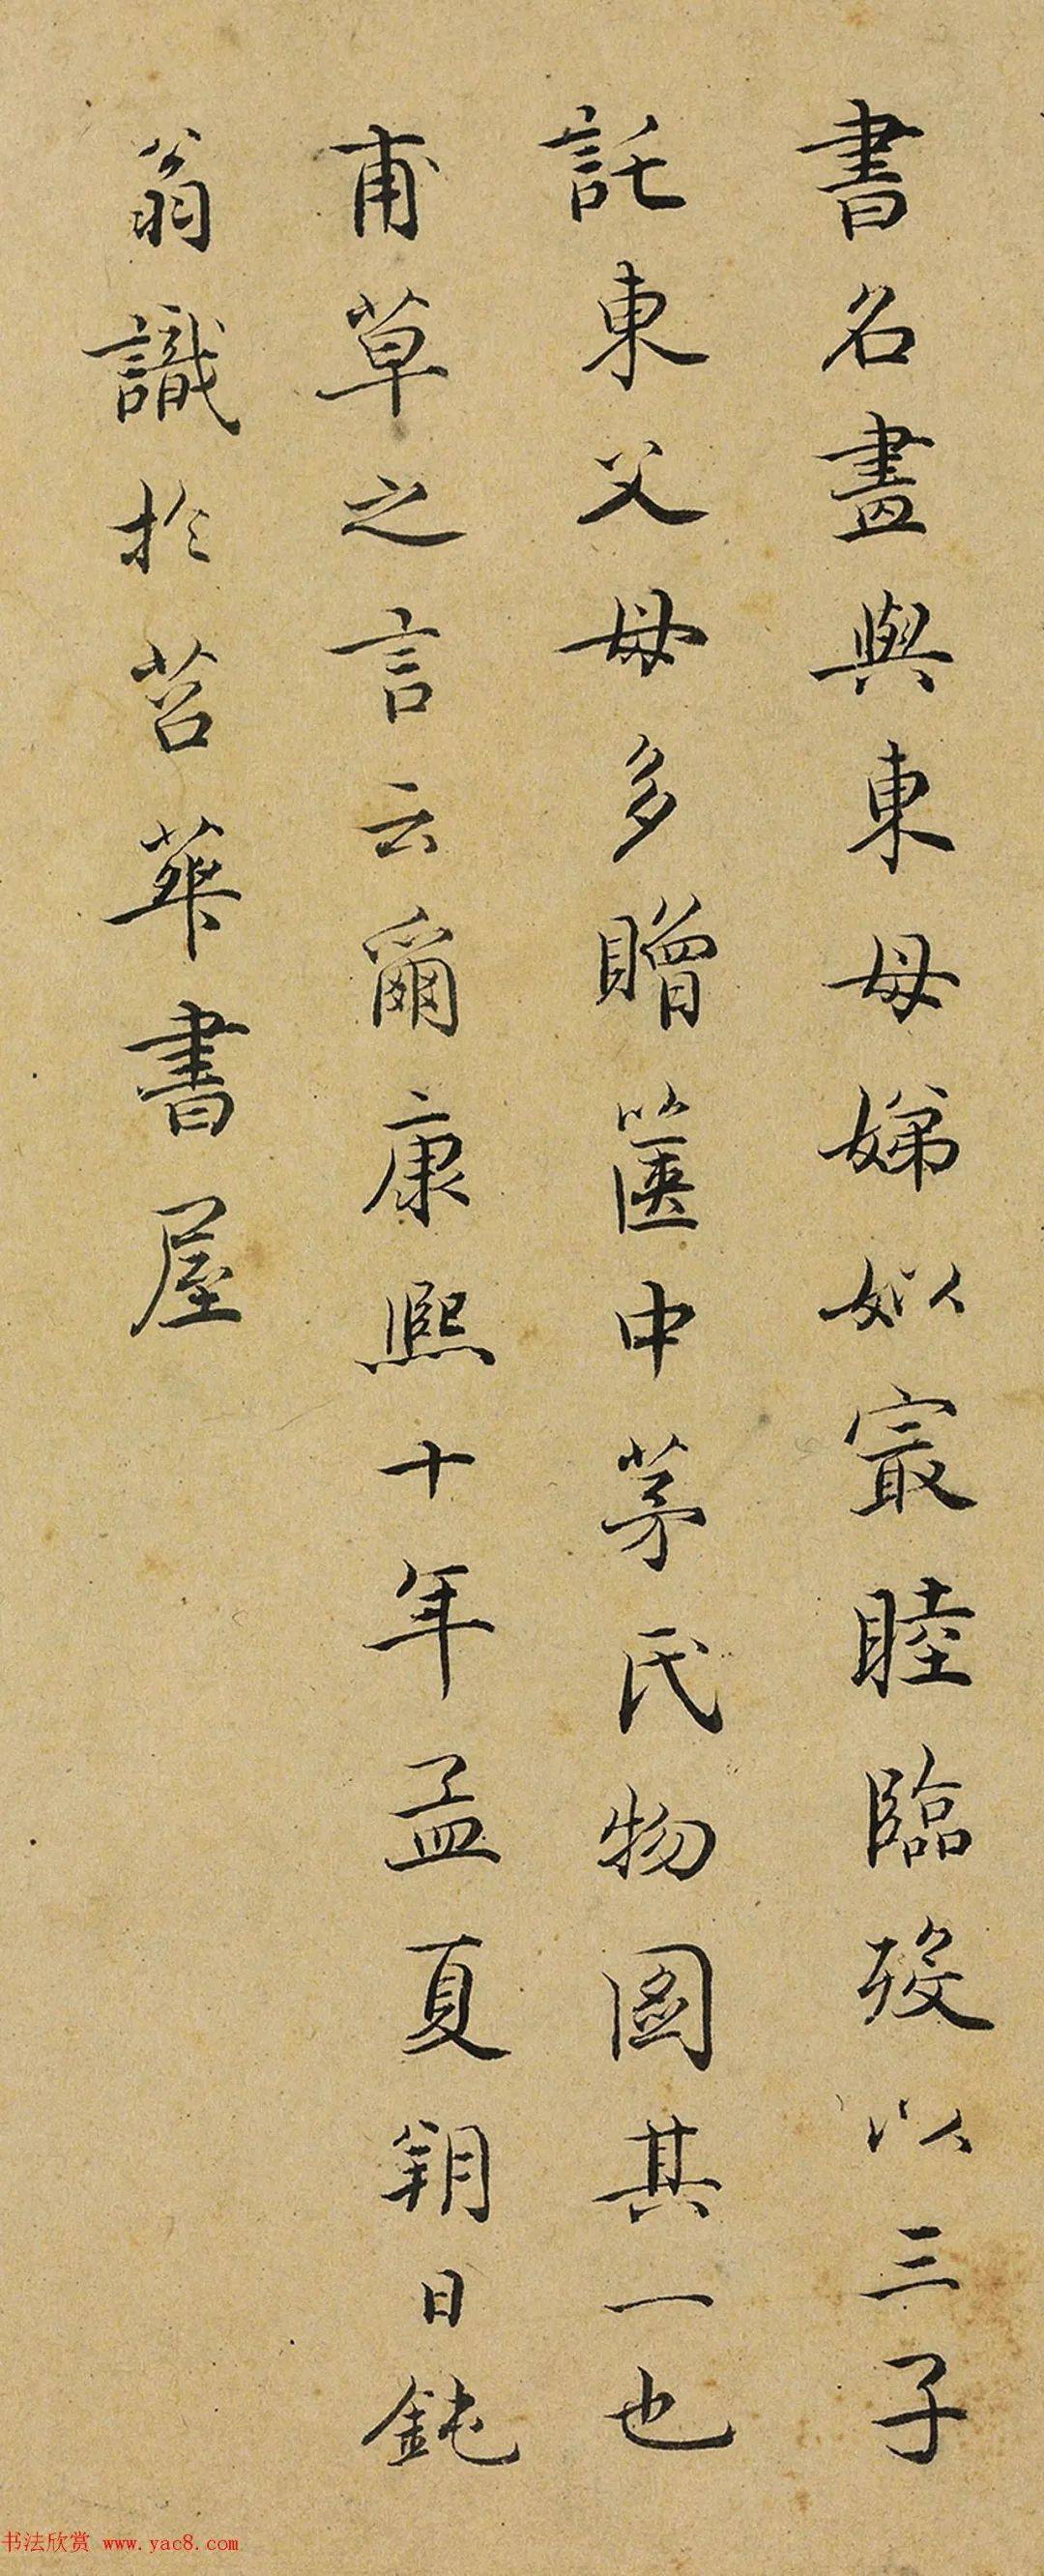 書名畫與東母娣姒冣睦臨歿以三子
託東父母多贈篋中茅氏物圖其一也
甫草之言云爾康熙十年孟夏朔日鈍
翁識於苕華書屋
书法欣赏 www.yac8.com